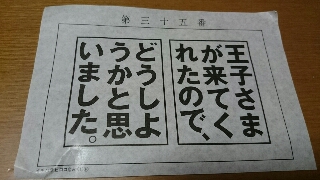 第三十五番
王子さま
が来てく
れたので、
どうしよ
うかと思
いました。